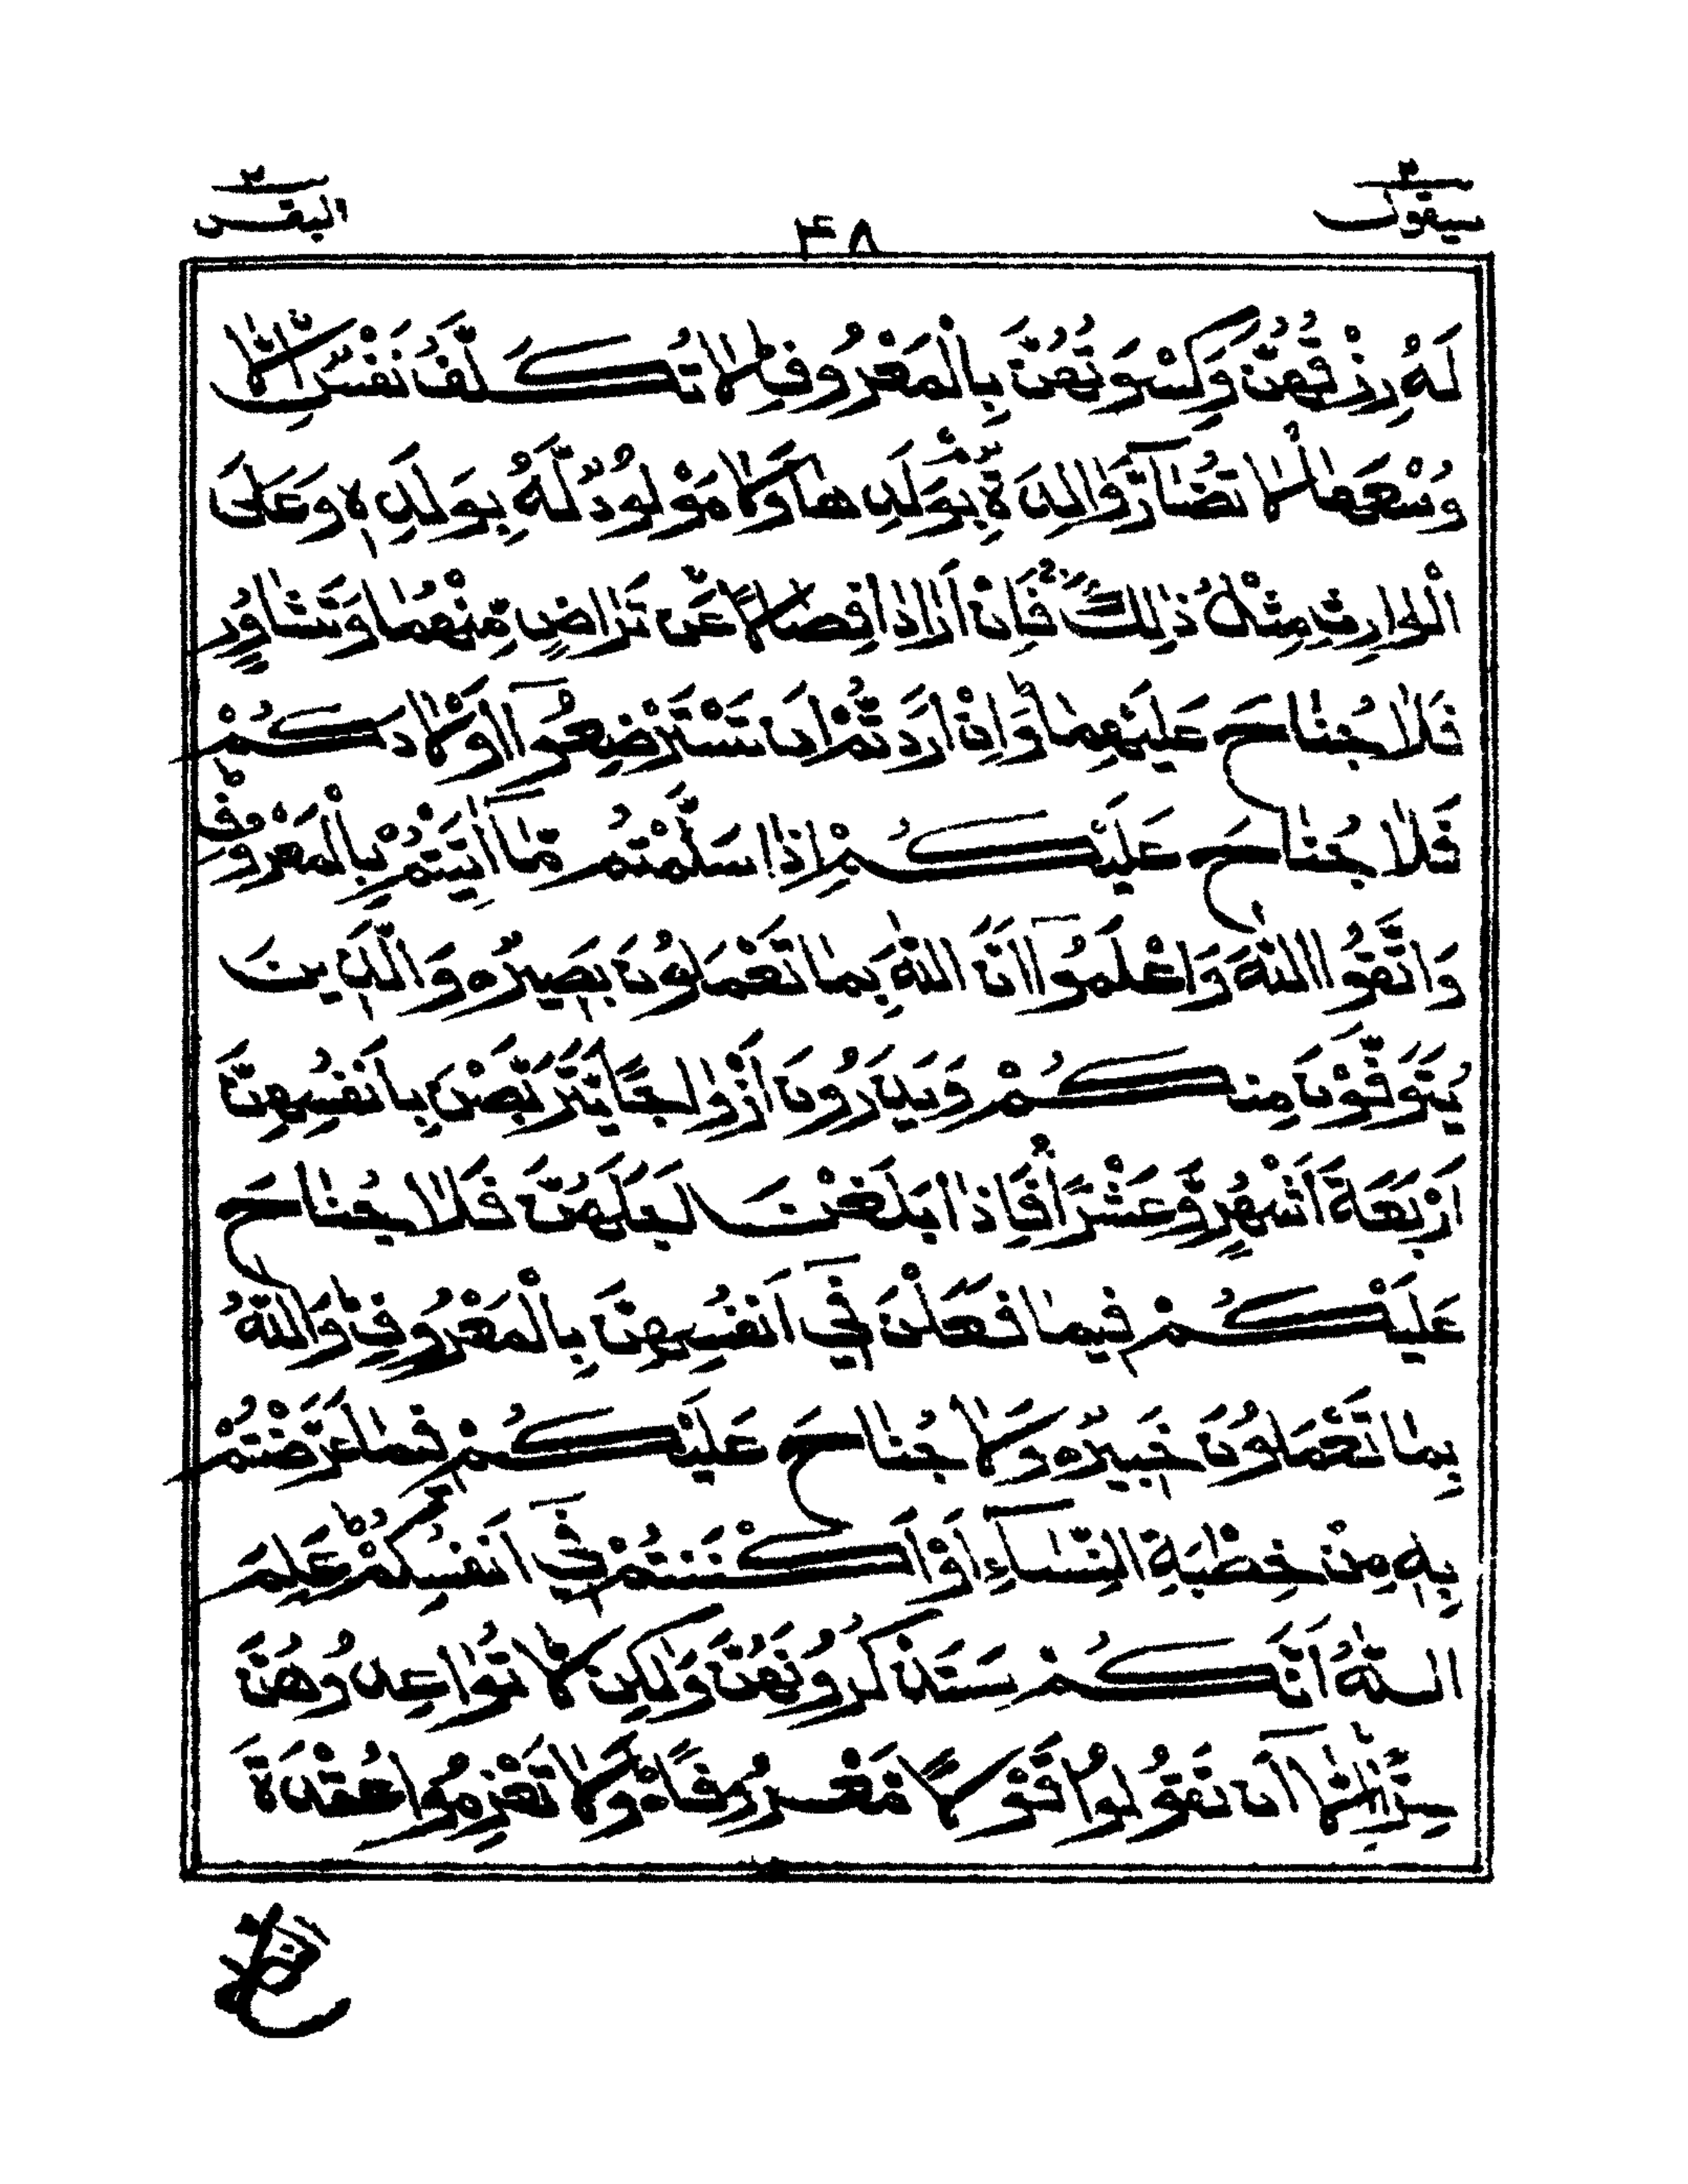 سيقول ٢
٤٨
البقرة ٢
لَهٗ رِزْقُهُنَّ وَكِسْوَتُهُنَّ بِالْمَعْرُوْفِ ؕ لَا تُكَلَّفُ نَفْسٌ اِلَّا
وُسْعَهَا ۚ لَا تُضَآرَّ وَالِدَةٌۢ بِوَلَدِهَا وَلَا مَوْلُوْدٌ لَّهٗ بِوَلَدِهٖ ۗ وَعَلَى
الْوَارِثِ مِثْلُ ذٰلِكَ ۚ فَاِنْ اَرَادَا فِصَالًا عَنْ تَرَاضٍ مِّنْهُمَا وَتَشَاوُرٍ
فَلَا جُنَاحَ عَلَيْهِمَا ؕ وَاِنْ اَرَدْتُّمْ اَنْ تَسْتَرْضِعُوْۤا اَوْلَادَكُمْ
فَلَا جُنَاحَ عَلَيْكُمْ اِذَا سَلَّمْتُمْ مَّاۤ اٰتَيْتُمْ بِالْمَعْرُوْفِ ؕ
وَاتَّقُوا اللّٰهَ وَاعْلَمُوْۤا اَنَّ اللّٰهَ بِمَا تَعْمَلُوْنَ بَصِيْرٌ ۝ وَالَّذِيْنَ
يُتَوَفَّوْنَ مِنْكُمْ وَيَذَرُوْنَ اَزْوَاجًا يَّتَرَبَّصْنَ بِاَنْفُسِهِنَّ
اَرْبَعَةَ اَشْهُرٍ وَّعَشْرًا ۚ فَاِذَا بَلَغْنَ اَجَلَهُنَّ فَلَا جُنَاحَ
عَلَيْكُمْ فِيْمَا فَعَلْنَ فِيْۤ اَنْفُسِهِنَّ بِالْمَعْرُوْفِ ؕ وَاللّٰهُ
بِمَا تَعْمَلُوْنَ خَبِيْرٌ ۝ وَلَا جُنَاحَ عَلَيْكُمْ فِيْمَا عَرَّضْتُمْ
بِهٖ مِنْ خِطْبَةِ النِّسَآءِ اَوْ اَكْنَنْتُمْ فِيْۤ اَنْفُسِكُمْ ؕ عَلِمَ
اللّٰهُ اَنَّكُمْ سَتَذْكُرُوْنَهُنَّ وَلٰكِنْ لَّا تُوَاعِدُوْهُنَّ
سِرًّا اِلَّاۤ اَنْ تَقُوْلُوْا قَوْلًا مَّعْرُوْفًا ؕ۬ وَلَا تَعْزِمُوْا عُقْدَةَ